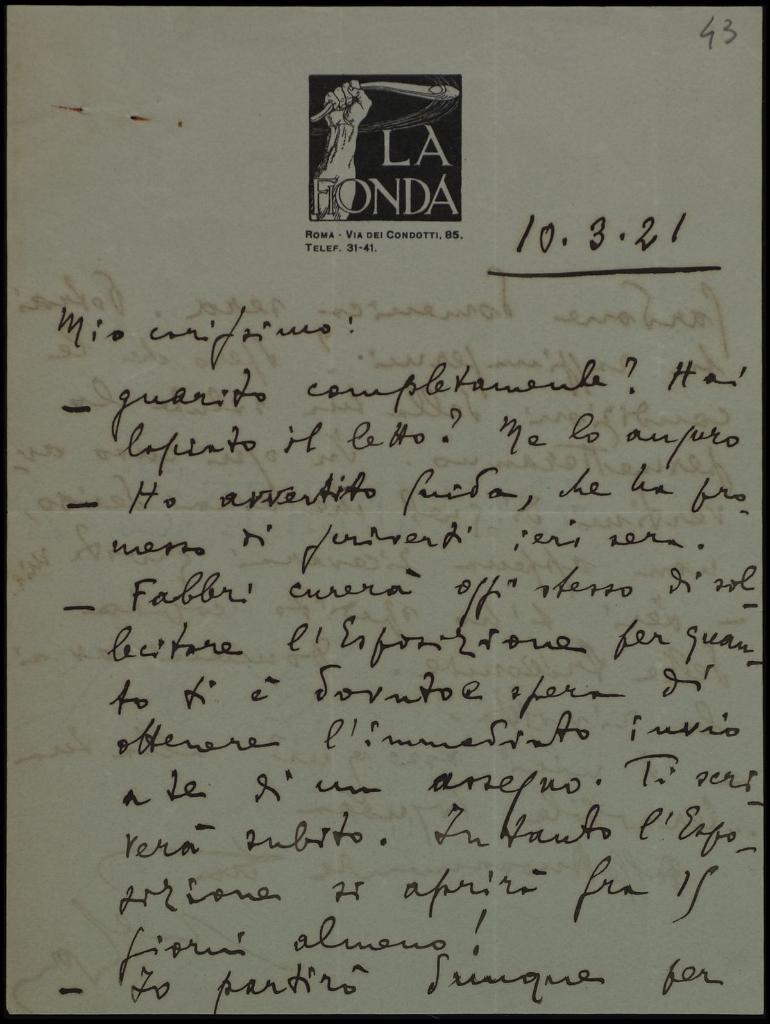 43
LA
FIONDA
ROMA - VIA DEI CONDOTTI, 85.
TELEF. 31-41.
10.3.21
Mio carissimo:
- guarito completamente? Hai
lasciato il letto? Me lo auguro
- Ho avvertito Guido, che ha pro-
messo di scriverti ieri sera.
- Fabbri curerà oggi stesso di sol-
lecitare l'Esposizione per quan-
to ti è dovuto e spera di
ottenere l'immediato invio
a te di un assegno. Ti scri-
verà subito. Intanto l'Espo-
sizione si aprirà fra 15
giorni almeno!
- Io partirò dunque per